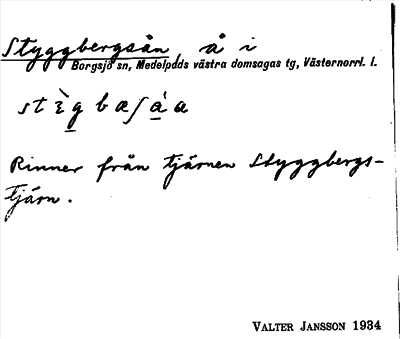 Styggbergsån, å i
Borgsjö sn, Medelpads västra domsagas tg, Västernorrl. l.
Rinner från tjärnen Styggbergs-
tjärn.
VALTER JANSSON 1934